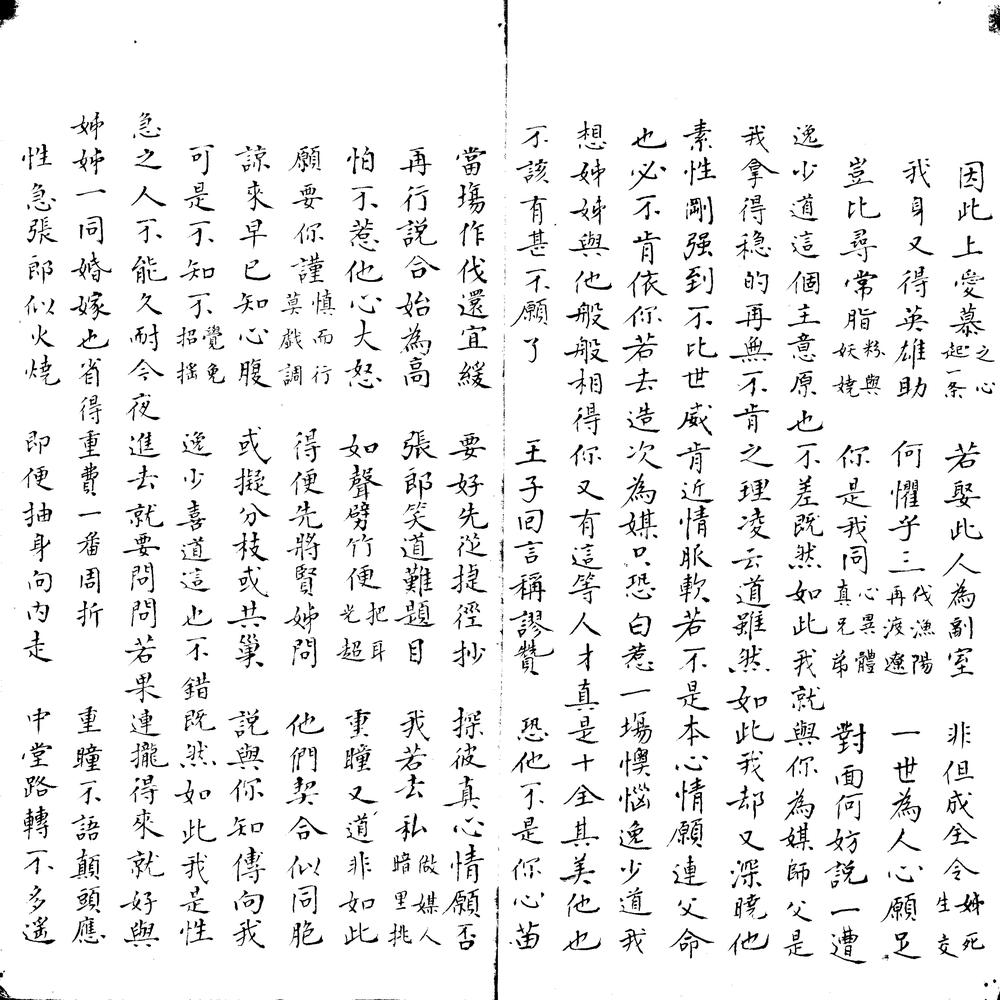 因此上愛慕之心起一条 若娶此人為副室 非但成全令姊死生交
我身又得英雄助 何懼乎三伐漁陽再渡遼 一世為人心願足
豈比尋常脂粉與妖嬈 你是我同心異體真兄弟 對面何妨說一遭
逸少道這個主意原也不差既然如此我就與你為媒師父是
我拿得穩的再無不肯之理凌云道雖然如此我却又深曉他
素性剛强到不比世威肯近情脈軟若不是本心情願連父命
也必不肯依你若去造次為媒只恐白惹一塲懊惱逸少道我
想姊姊與他般般相得你又有這等人才真是十全其美他也
不該有甚不願了 王子回言稱謬贊 恐他不是你心苗
當塲作伐還宜緩 要好先從捷徑抄 探彼真心情願否
再行説合始為高 張郎笑道難題目 我若去私做媒人暗里挑
怕不惹他心大怒 如聲劈竹便把耳光超 重瞳又道非如此
願要你謹慎而行莫戲調 得便先將賢姊問 他們契合似同胞
諒來早已知心腹 或擬分枝或共巢 說與你知傳向我
可是不知不覺免招搖 逸少喜道這也不錯既然如此我是性
急之人不能久耐今夜進去就要問問若果連攏得來就好與
姊姊一同婚嫁也省得重費一番周折 重瞳不語顛頭應
性急張郎似火燒 即便抽身向內走 中堂路轉不多遙